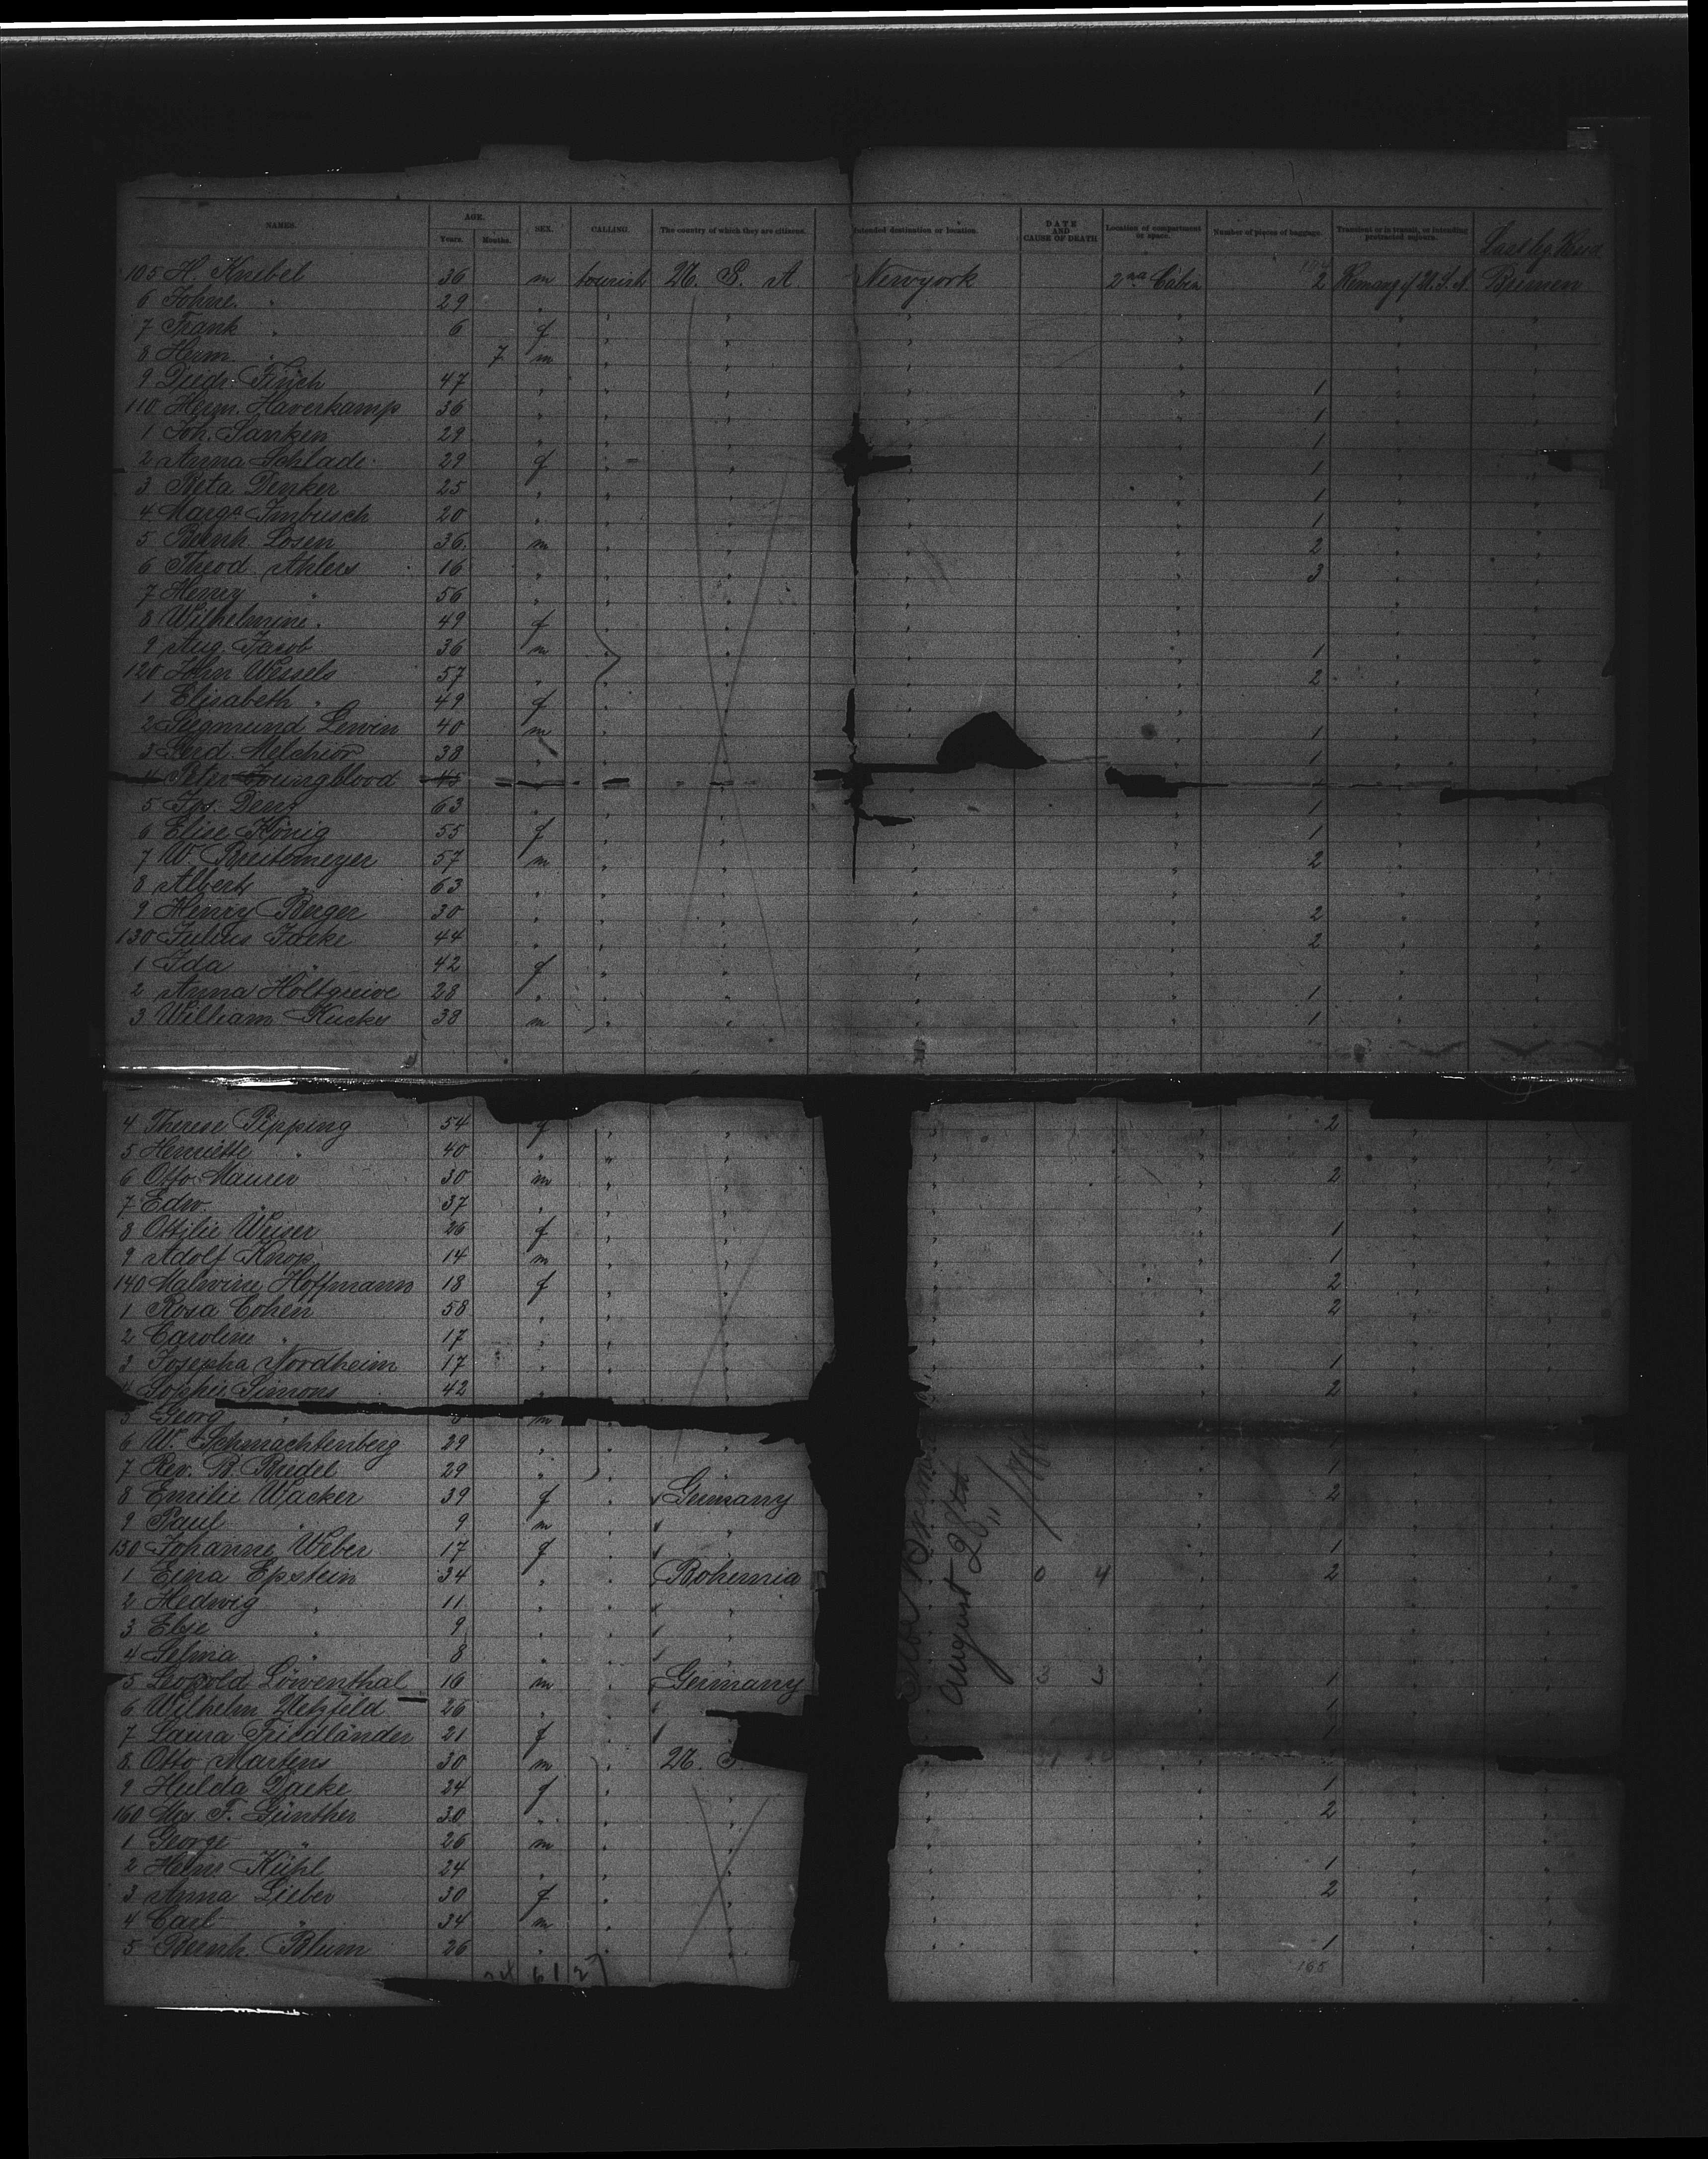 NAMES. AGE. Years. Months. SEX. CALLING. The country of which they are citizens. Intended destination or location. DATE AND CAUSE OF DEATH Location of compartment or space. Number of pieces of baggage. Transient or in transit, or intending protracted sojourn. Last leg.
105 H. Knebel 36 m tourist U. S. A. Newyork 2nd Cabin 2 U.S.A. Bremen
6 " 29 "
7 Frank " 6 f
8 Herm. " 7 m
9 Diedr. Finch 47 " 1
110 Herm. Haverkamp 36 " 1
1 Joh. Janken 29 " 1
2 Anna Schlade 29 f 1
3 Meta Denker 25 " 1
4 Marga Imbusch 20 " 1
5 Bernh. Losen 36 m 2
6 Theod. Ahlers 16 " 3
7 Henry " 56 "
8 Wilhelmine " 49 f
9 Aug. Jacob 36 m 1
120 John Wessels 57 " 2
1 Elisabeth " 49 f
2 Siegmund Lewin 40 m 1
3 Ferd. Melchior 38 " 1
4 Peter Youngblood 45
5 Jos. 63 " 1
6 Elise König 55 f 1
7 W. Breitemeyer 57 m 2
8 Albert " 63 "
9 Henry Berger 30 " 2
130 Julius Jacke 44 " 2
1 Ida " 42 f
2 Anna Holtgreive 28 " 1
3 William Kucks 38 m 1
4 Therese Pipping 54 f 2
5 Henriette " 40 "
6 Otto Maurer 30 m 2
7 Edw. " 37 "
8 Ottilie Weiser 26 f 1
9 Adolf Knop 14 m 1
140 Malwine Hoffmann 18 f 2
1 Rosa Cohen 58 " 2
2 Caroline " 17 "
3 Josepha Nordheim 17 " 1
4 Sophie Simons 42 " 2
5 Georg " m
6 W. Schmachtenberg 29 "
7 Rev. B. Bredel 29 " 1
8 Emilie Wacker 39 f Germany 2
9 Paul " 9 m "
150 Johanne Weber 17 f 1
1 Epstein 34 " Bohemia 0 4 2
2 Hedwig " 11 " "
3 Else " 9 " "
4 Selma " 8 "
5 Leopold Löwenthal 16 m Germany 1
6 Wilhelm 26 " 1
7 Laura Friedländer 21 f 1
8 Otto Martens 30 m U. S.
9 Hulda Daeke 24 f 1
160 Mrs. F. Günther 30 " 2
1 George " 26 m
2 Herm. Kühl 24 " 1
3 Anna Lieber 30 f 2
4 Carl " 34 m
5 Bernh. Blum 26 " 1
165
August 28th